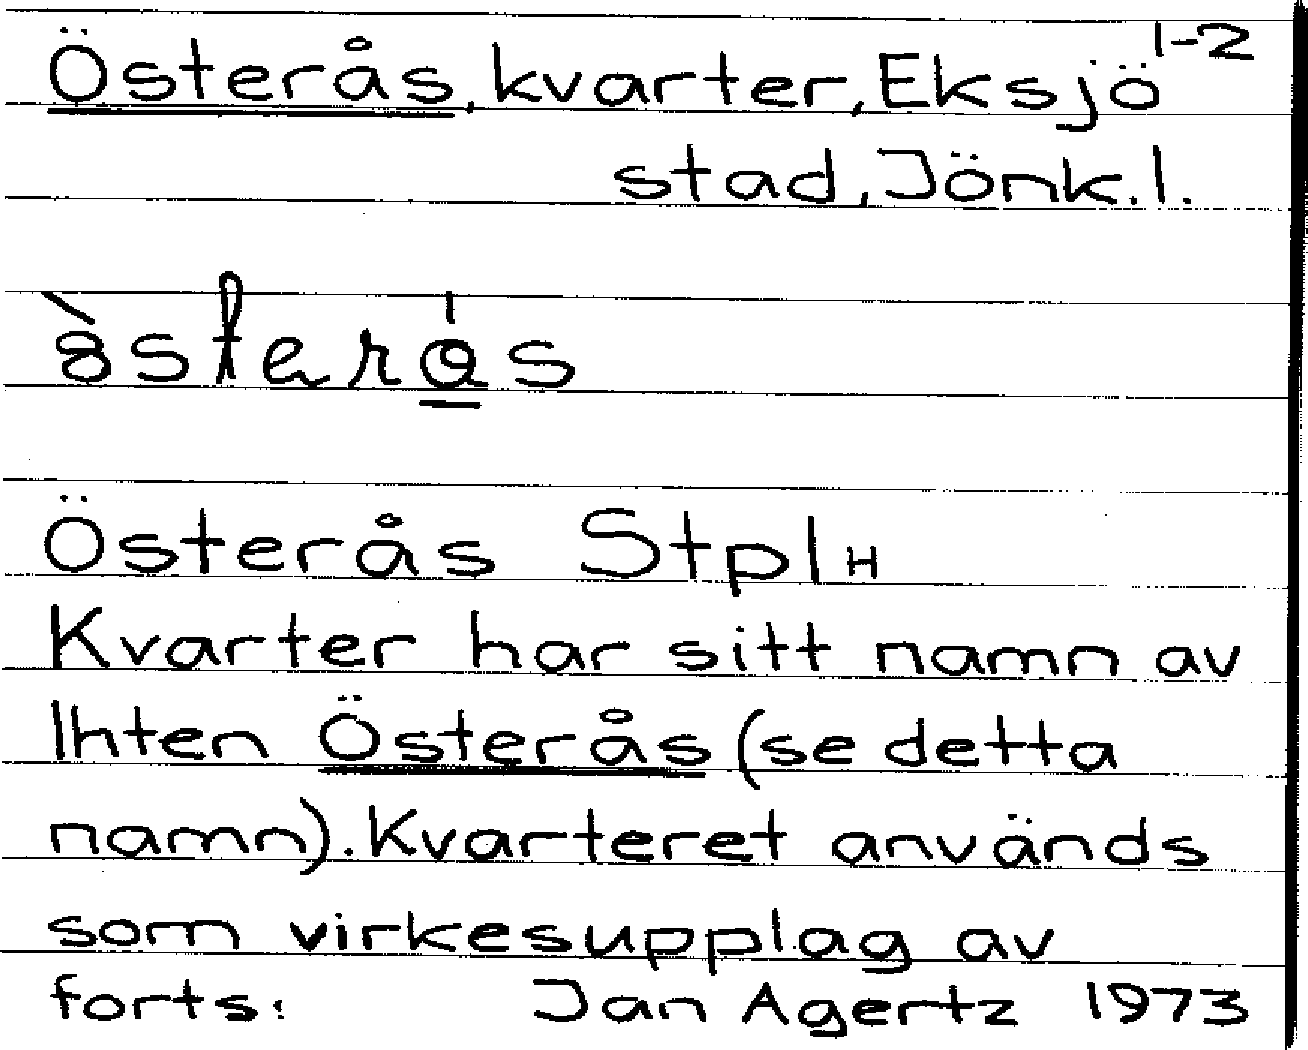 Österås, kvarter, Eksjö 1-2
stad, Jönk.l.
Österås Stpl H
Kvarter har sitt namn av
lhten Österås (se detta
namn). Kvarteret används
som virkesupplag av
forts: Jan Agertz 1973